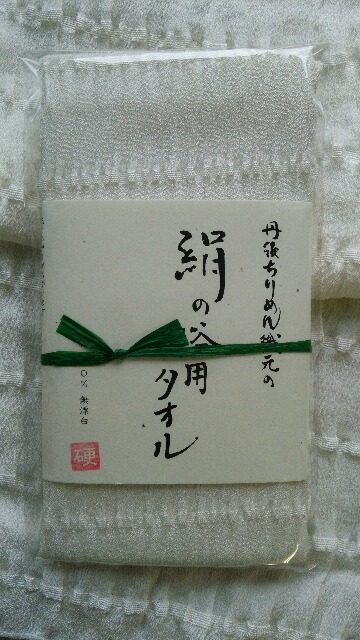 丹後ちりめん織元の
絹の浴用
タオル
0% 無漂白
硬